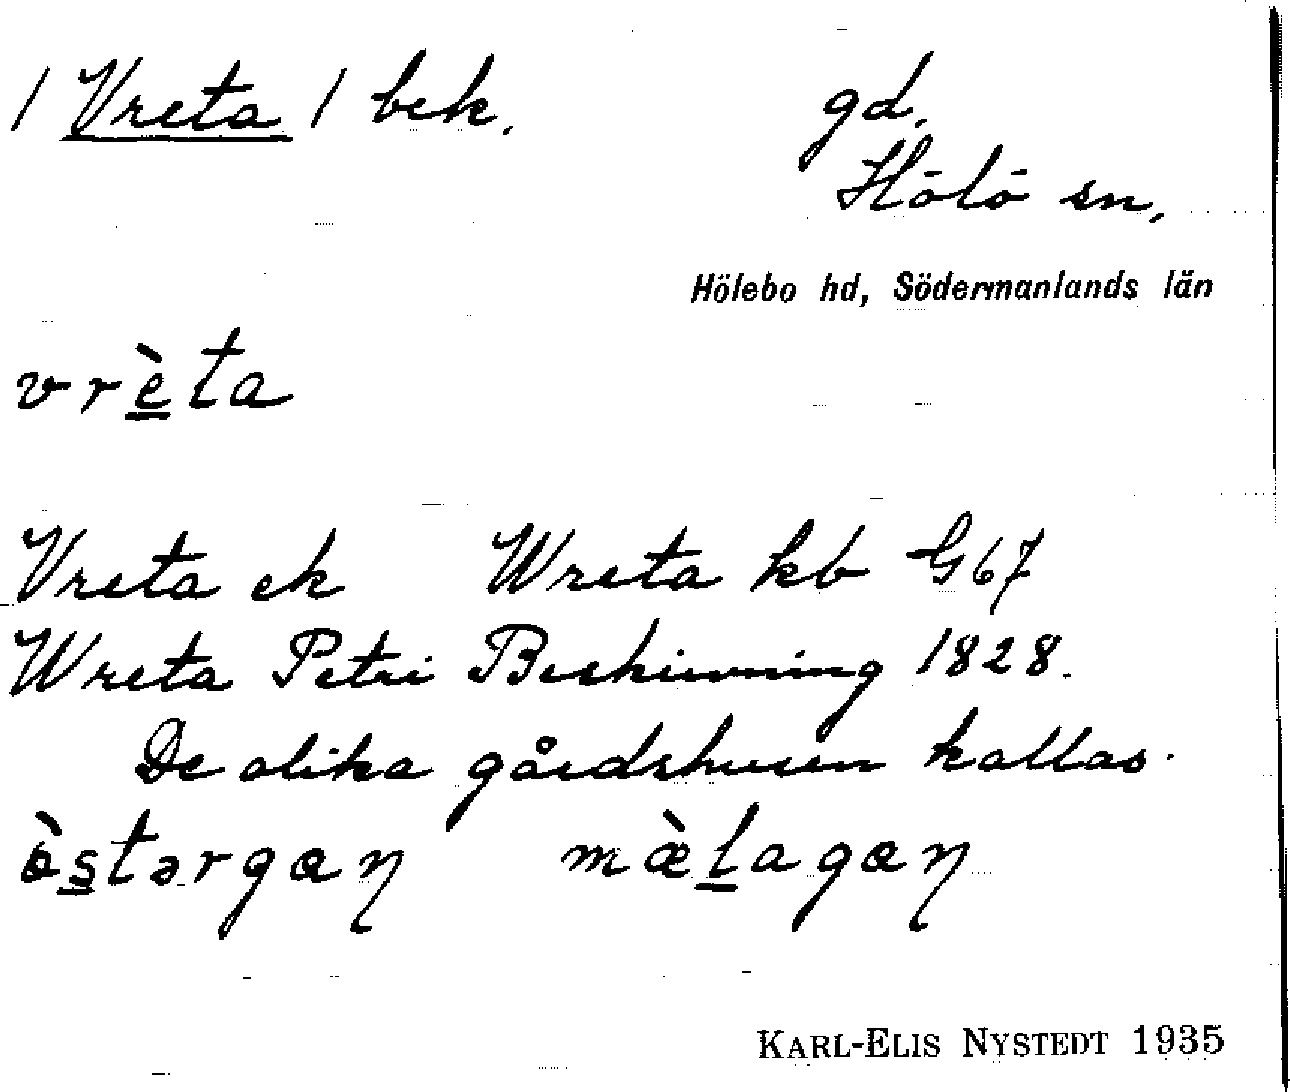 / Vreta / bek.
gd.
Hölö sn.
Hölebo hd, Södermanlands län
vrèta
Vreta ek Wreta kb G67
Wreta Petri Beskrivning 1828.
De olika gårdshusen kallas.
òstərgaŋ mæ̀lagaŋ
KARL-ELIS NYSTEDT 1935